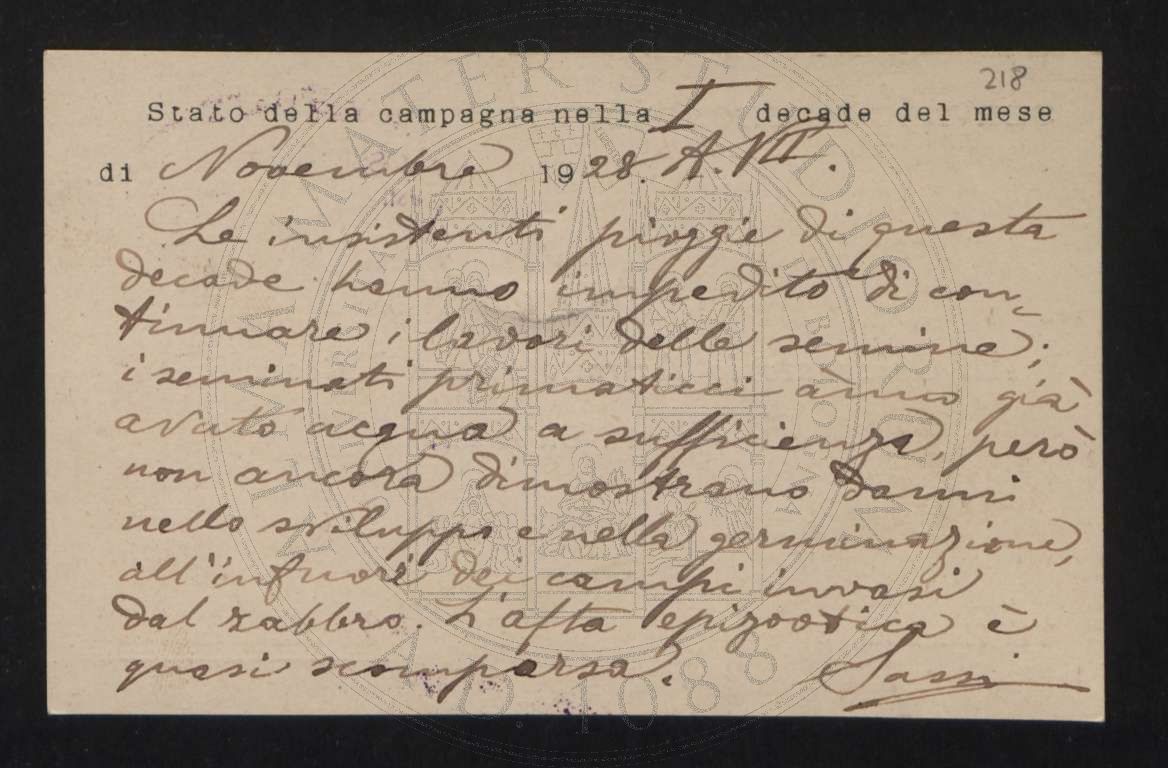 218
Stato della campagna nella I decade del mese
di Novembre 1928. A. VII.
Le insistenti pioggie di questa
decade hanno impedito di con-
tinuare i lavori delle semine;
i seminati primaticci ànno già
avuto acqua a sufficienza, però
non ancora dimostrano danni
nello sviluppo e nella germinazione,
all'infuori dei campi invasi
dal zabbro. L'afta epizootica è
quasi scomparsa. Sassi
ALMA MATER STUDIORUM
A.D. 1088